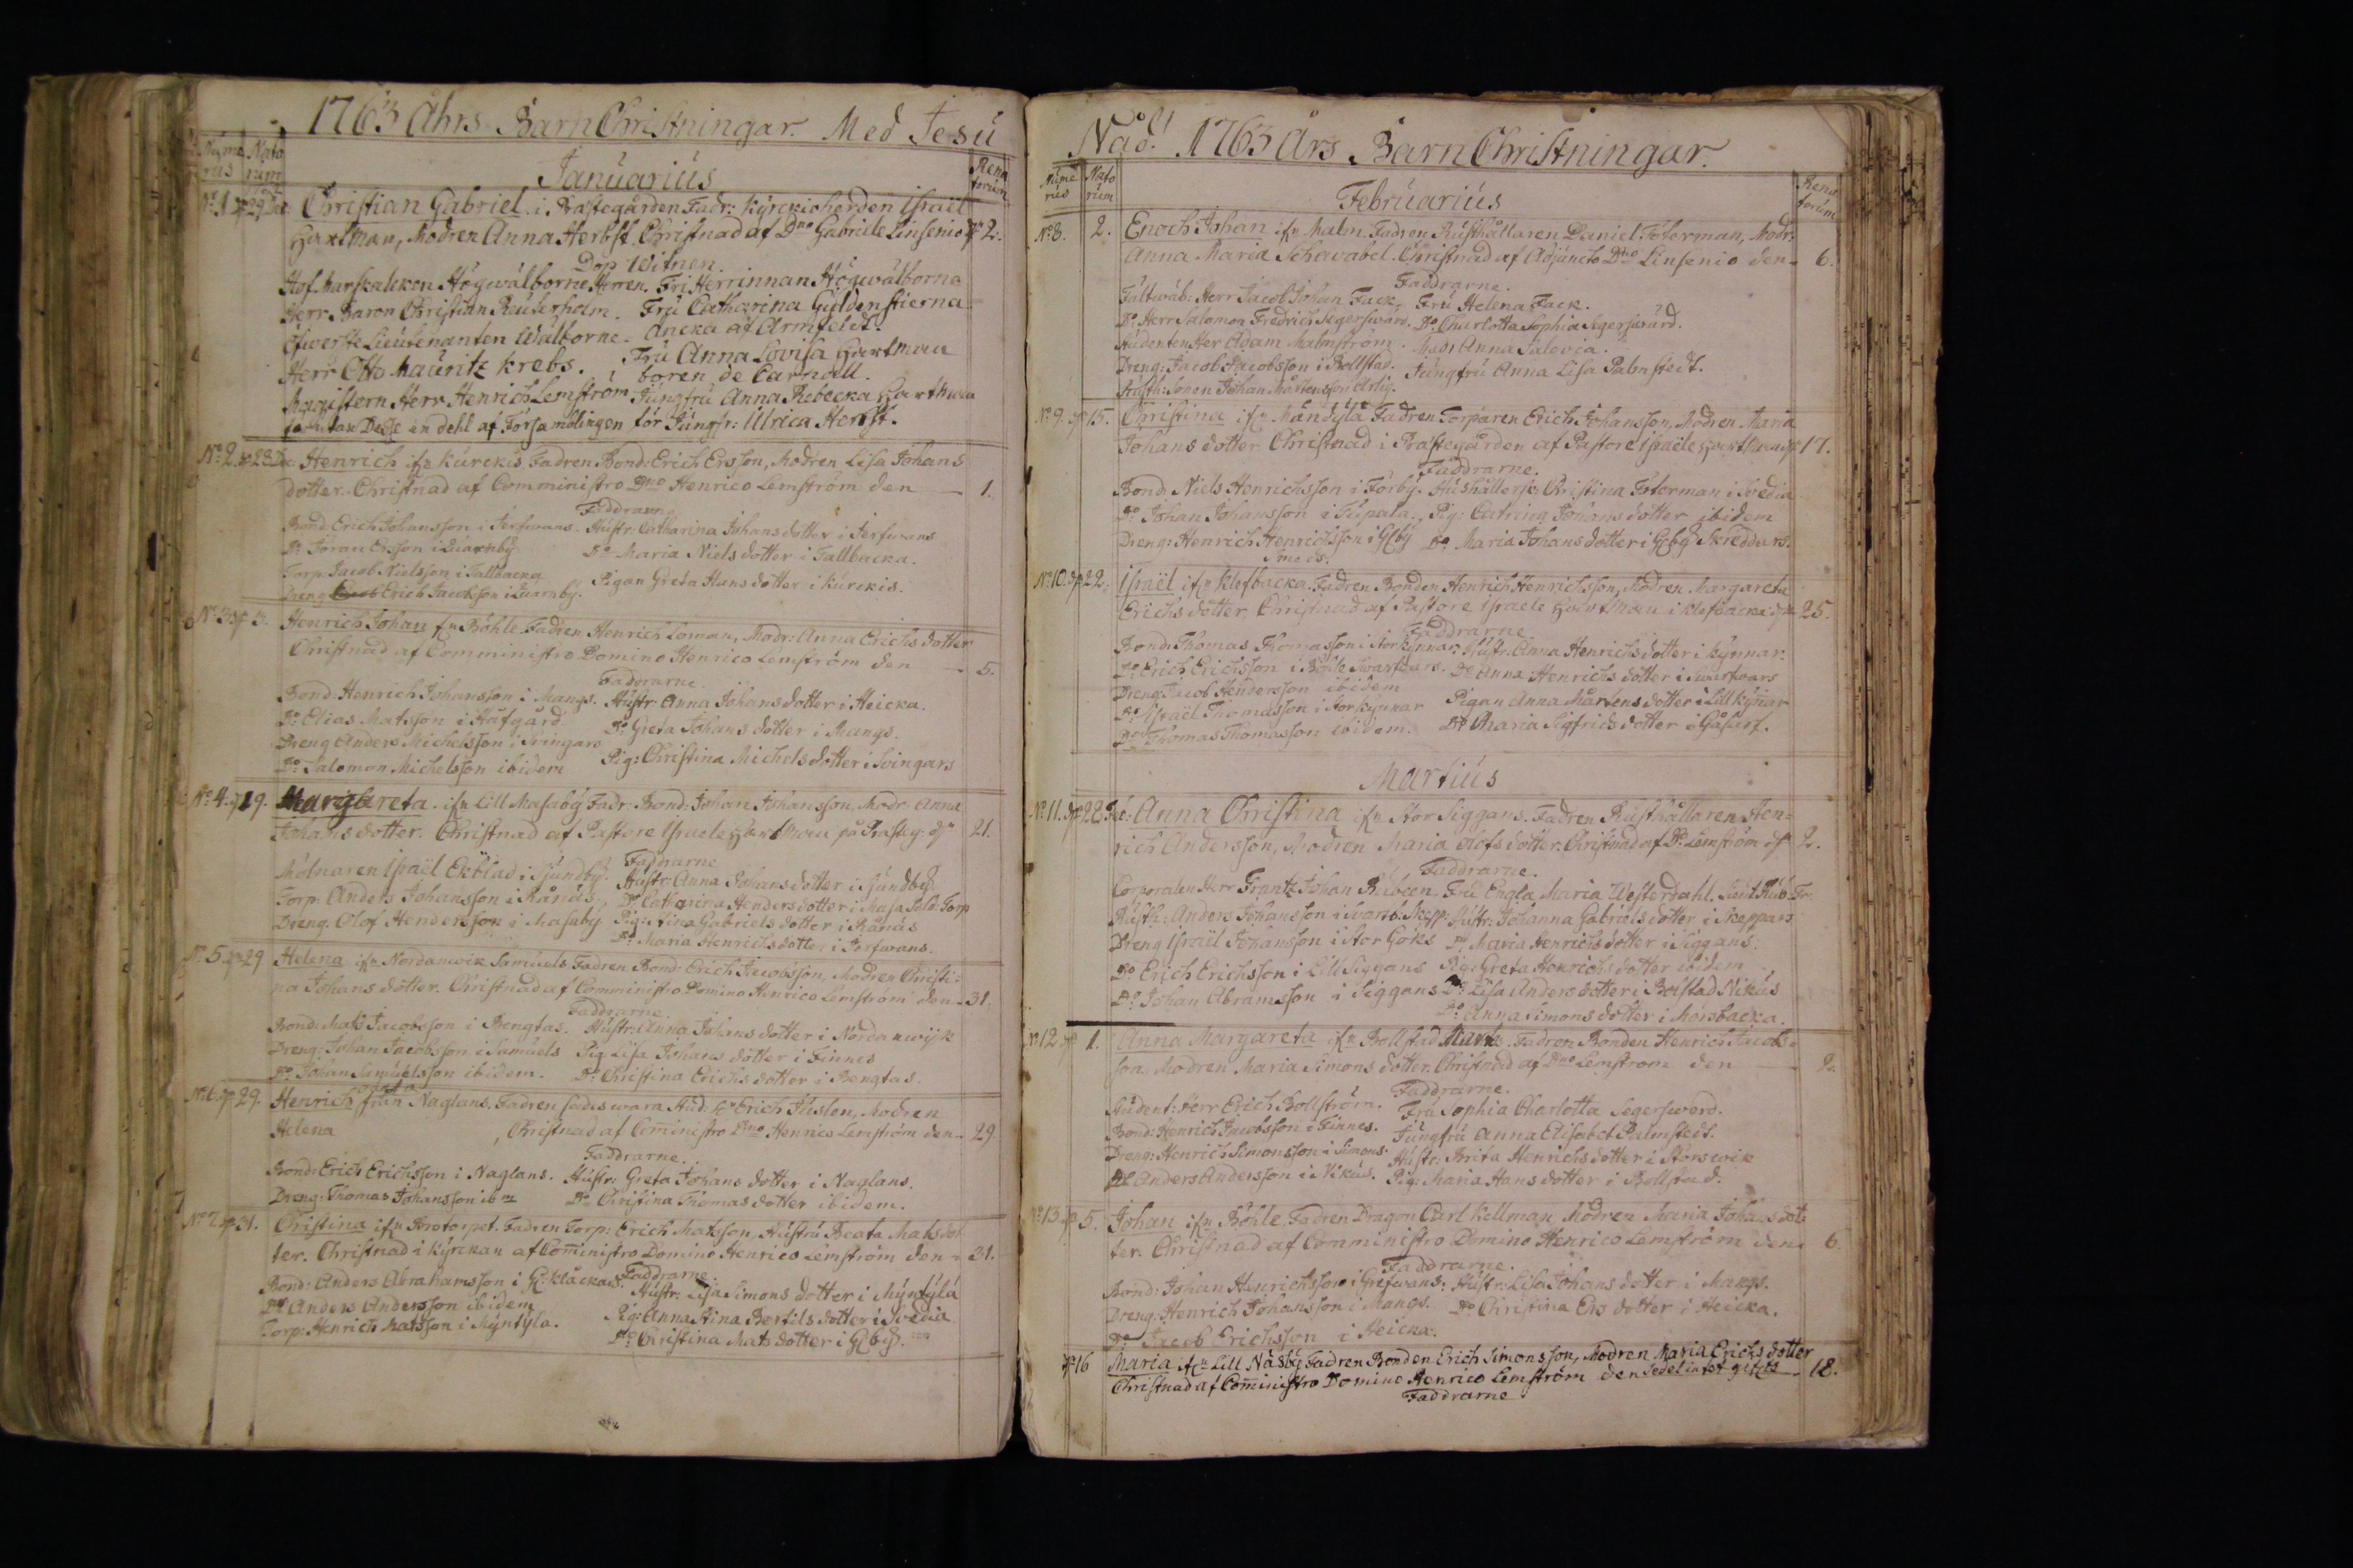 1763 Åhrs Barn Christningar. Med Jesu
Nume rus Nato rum Renatorum
Januarius
No 1 29 Dec. Christian Gabriel i Prästegården Fadr: Kyrckioherden Israël
Hartman, Modren Anna Herbst. Christnad af Dno Gabriele Linsenio 2.
Dop Witnen.
Hof Marskalcken Högwälborne Herren. Fri Herrinnan Högwälborna
Herr Baron Christian Reuterholm. Fru Catharina Gyldenstierna.
Öfwerste Lieutenanten Wälborne Ancka af Armfeldt.
Herr Otto Mauritz Krebs. Fru Anna Lovisa Hartman
boren de Carnall.
Magistern Herr Henrich Lemström Jungfru Anna Rebecka Hartman
en dehl af Församblingen för Jungfr: Ulrica Herbst.
No 2. 28 Dec. Henrich ifn Kurckis. Fadren Bond: Erich Ersson, Modren Lisa Johans
dotter. Christnad af Comministro Dno Henrico Lemström den 1.
Faddrarne
Bond: Erich Johansson i Jerfwans. Hustr: Catharina Johans dotter i Jerfwans
Do Jöran Ersson i Quarnby Do Maria Niels dotter i Tallbacka.
Torp: Jacob Nielsson i Tallbacka Pigan Greta Hans dotter i Kurckis.
Dreng Erich Jacobsson i Quarnby.
No 3 3. Henrich Johan fn Böhle. Fadren Henrich Loman, Modr: Anna Erichs dotter
Christnad af Comministro Domino Henrico Lemström den 5.
Faddrarne.
Bond: Henrich Johansson i Mangs. Hustr: Anna Johans dotter i Heicka.
Do Elias Matsson i Håfgård. Do Greta Johans dotter i Mangs.
Dreng Anders Michelsson i Svingars Pig: Christina Michels dotter i Svingars
Do Salomon Michelsson ibidem
No 4. 19. Margareta. ifn Lill Masaby Fadr: Bond: Johan Johansson, Modr Anna
Johans dotter. Christnad af Pastore Israele Hartman på Prästeg: dn 21.
Faddrarne
Mölnaren Israël Ekblad i Sjundby. Hustr: Anna Johans dotter i Sjundby.
Torp: Anders Johansson i Rånäs. Do Catharina Henders dotter i Masa Sold. Torp
Dreng. Olof Hendersson i Masaby Pig: Stina Gabriels dotter i Rånäs
Do Maria Henrichs dotter i Jerfwans.
No 5 29 Helena ifn Nordanwik Samuels. Fadren Bond: Erich Jacobsson, Modren Christi:
na Johans dotter. Christnad af Comministro Domino Henrico Lemström den 31.
Faddrarne.
Bond: Mats Jacobsson i Bengtas. Hustr: Anna Johans dotter i Nordanwijk
Dreng: Johan Jacobsson i Samuels Pig Lisa Johans dotter i Finnes
Do Johan Samuelsson ibidem. Do Christina Erichs dotter i Bengtas.
No 6. 29. Henrich från Naglans. Fadren sades wara Stud: Hr Erich Juslen, Modren
Helena , Christnad af Coministro Dno Henrico Lemström den 29
Faddrarne.
Bond: Erich Erichsson i Naglans. Hustr: Greta Johans dotter i Naglans.
Dreng: Thomas Johansson ibm Do Christina Thomas dotter ibidem.
No 7. 31. Christina ifn Brotorpet. Fadren Torp: Erich Matsson, Hustru Beata Mats dot
ter. Christnad i Kyrckan af Coministro Domino Henrico Lemström den 31.
Faddrarne.
Bond: Anders Abrahamsson i Klåckars. Hustr: Lisa Simons dotter i Myntylä
Do Anders Andersson ibidem Pig: Anna Stina Bertils dotter i Svedia
Torp: Henrich Matsson i Myntylä. Do Christina Mats dotter i Gby.
Nåd! 1763 Års Barn Christningar.
Nume rus Nato rum Renatorum
Februarius
No 8. 2. Enoch Johan ifn Malm. Fadren Rusthållaren Daniel Foterman, Modr:
Anna Maria Schavabel. Christnad af Adjuncto Dno Linsenio den 6.
Faddrarne.
Fältwäb: Herr Jacob Johan Fack. Fru Helena Fack.
Do Herr Salomon Fredrich Segerswärd. Do Charlotta Sophia Segerswärd.
Studenten Her Adam Malmström. Mad: Anna Salovia.
Dreng: Jacob Jacobsson i Bollstad. Jungfru Anna Lisa Palmstedt.
Rusth: Sonen Johan Mårtensson Ärlig.
No 9. 15. Christina ifn Mändylä Fadren Torparen Erich Johansson, Modren Maria
Johans dotter Christnad i Prästegården af Pastore Israële Hartman 17.
Faddrarne.
Bond: Niels Henrichsson i Förby. Hushållersk: Christina Foterman i Svedia
Do Johan Johansson i Tupala. Pig: Catrina Johans dotter ibidem
Dreng: Henrich Henrichsson i Gby Do Maria Johans dotter i Gby Skreddars.
Smeds.
No 10. 22. Israël ifn Klefbacka. Fadren Bonden Henrich Henrichsson, Modren Margareta
Erichs dotter. Christnad af Pastore Israele Hartman i Klefbacka dn 25.
Faddrarne
Bond: Thomas Thomasson i Storkynnar. Hustr: Anna Henrichs dotter i Kynnar.
Do Erich Erichsson i Böhle Swartbäcs. Do Anna Henrichs dotter i Swartwars
Dreng Jacob Hendersson ibidem Pigan Anna Mårtens dotter i Lillkynar
Do Israël Thomasson i Storkynnar Do Maria Sigfrids dotter i Gåsarf.
Do Thomas Thomasson ibidem.
Martius
No 11. 28 Feb: Anna Christina ifn Stor Siggans. Fadren Rusthållaren Hen=
rich Andersson, Modren Maria Olofs dotter. Christnad af Do Lemström dn 2.
Faddrarne.
Corporalen Herr Frantz Johan Rubeen Fru Engla Maria Westerdahl.
Rusth: Anders Johansson i Svartb: Skepp: Hustr: Johanna Gabriels dotter i Skeppars
Dreng Israël Johansson i Stor Göks Do Maria Henrichs dotter i Siggans.
Do Erich Erichsson i Lill Siggans Pig: Greta Henrichs dotter ibidem
Do Johan Abramsson i Siggans Do Lisa Anders dotter i Bolstad Nikus
Do Anna Simons dotter i Morsbacka.
No 12 1. Anna Margareta ifn Bollstad Marks. Fadren Bonden Henrich Jacobs=
son, Modren Maria Simons dotter. Christnad af Dno Lemström den 2.
Faddrarne.
Student: Herr Erich Bollström. Fru Sophia Charlotta Segerswerd.
Bond: Henrich Jacobsson i Finnes. Jungfru Anna Elisabet Palmstedt.
Dreng: Henrich Simonsson i Simons. Hustr: Brita Henrichs dotter i Störswik
Do Anders Andersson i Nikus. Pig: Maria Hans dotter i Bollstad.
No 13 5. Johan ifn Böhle. Fadren Dragon Carl Kellman, Modren Maria Johans dot:
ter. Christnad af Comministro Domino Henrico Lemström den 6.
Faddrarne.
Bond: Johan Henrichsson i Grefwans. Hustr: Lisa Johans dotter i Mangs.
Dreng: Henrich Johansson i Mangs. Do Christina Ers dotter i Heicka.
Do Jacob Erichsson i Heicka.
16 Maria ifn Lill Näsby Fadren Bonden Erich Simonsson, Modren Maria Erichs dotter
Christnad af Coministro Domino Henrico Lemström den Sedel intet gifvits 18.
Faddrarne